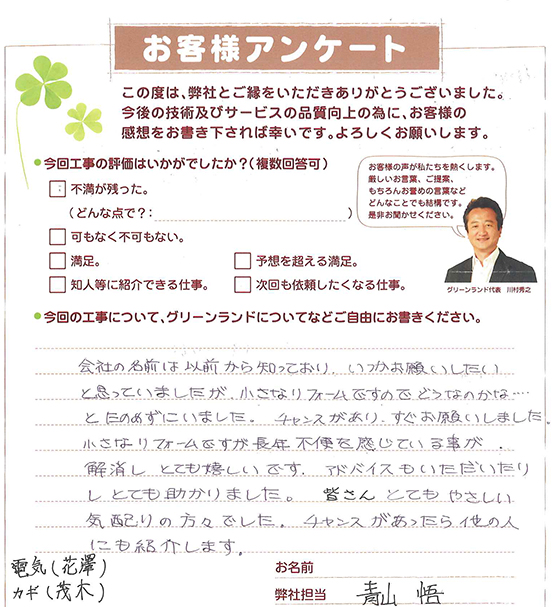 お客様アンケート
この度は、弊社とご縁をいただきありがとうございました。
今後の技術及びサービスの品質向上の為に、お客様の
感想をお書き下されば幸いです。よろしくお願いします。
●今回工事の評価はいかがでしたか？(複数回答可)
お客様の声が私たちを熱くします。
厳しいお言葉、ご提案、
もちろんお誉めの言葉など
どんなことでも結構です。
是非お聞かせください。
不満が残った。
(どんな点で？： )
可もなく不可もない。
満足。 予想を超える満足。
知人等に紹介できる仕事。 次回も依頼したくなる仕事。
グリーンランド代表 川村秀之
●今回の工事について、グリーンランドについてなどご自由にお書きください。
会社の名前は以前から知っており、いつかお願いしたい
と思っていましたが、小さなリフォームですのでどうなのかな‥‥
とたのめずにいました。 チャンスがあり、すぐお願いしました
小さなリフォームですが長年不便を感じている事が、
解消し とても嬉しいです。 アドバイスもいただいたり
し とても助かりました。 皆さん とても やさしい
気配りの方々でした。 チャンスがあったら他の人
にも紹介します。
電気(花澤)
カギ(茂木)
お名前
弊社担当 青山 悟